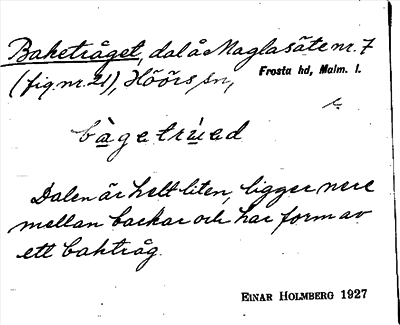 Baketråget, dal å Maglasäte nr. 7
(fig. nr. 21), Höörs sn,
Frosta hd, Malm. l.
bàgetrùed
Dalen är helt liten, ligger nere
mellan backar och har form av
ett baktråg.
EINAR HOLMBERG 1927